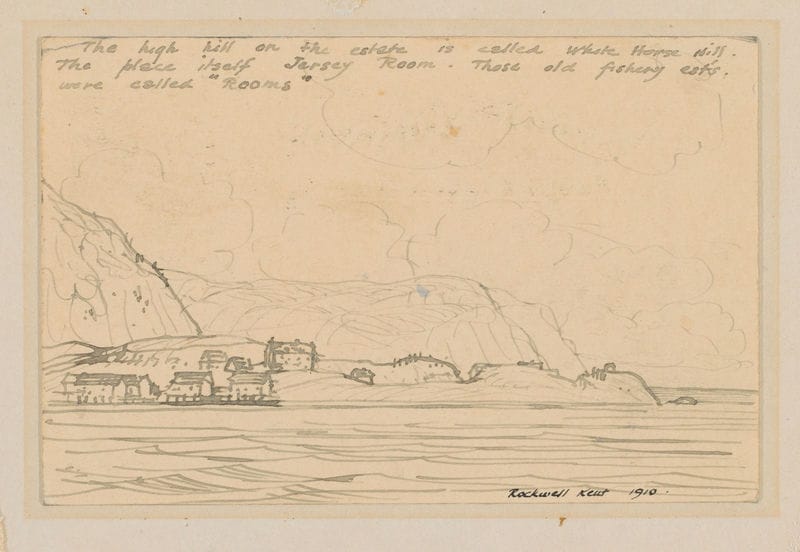 The high hill on the estate is called White Horse Hill.
The place itself Jersey Room. Those old fishery est's.
were called "Rooms"
Rockwell Kent 1910.